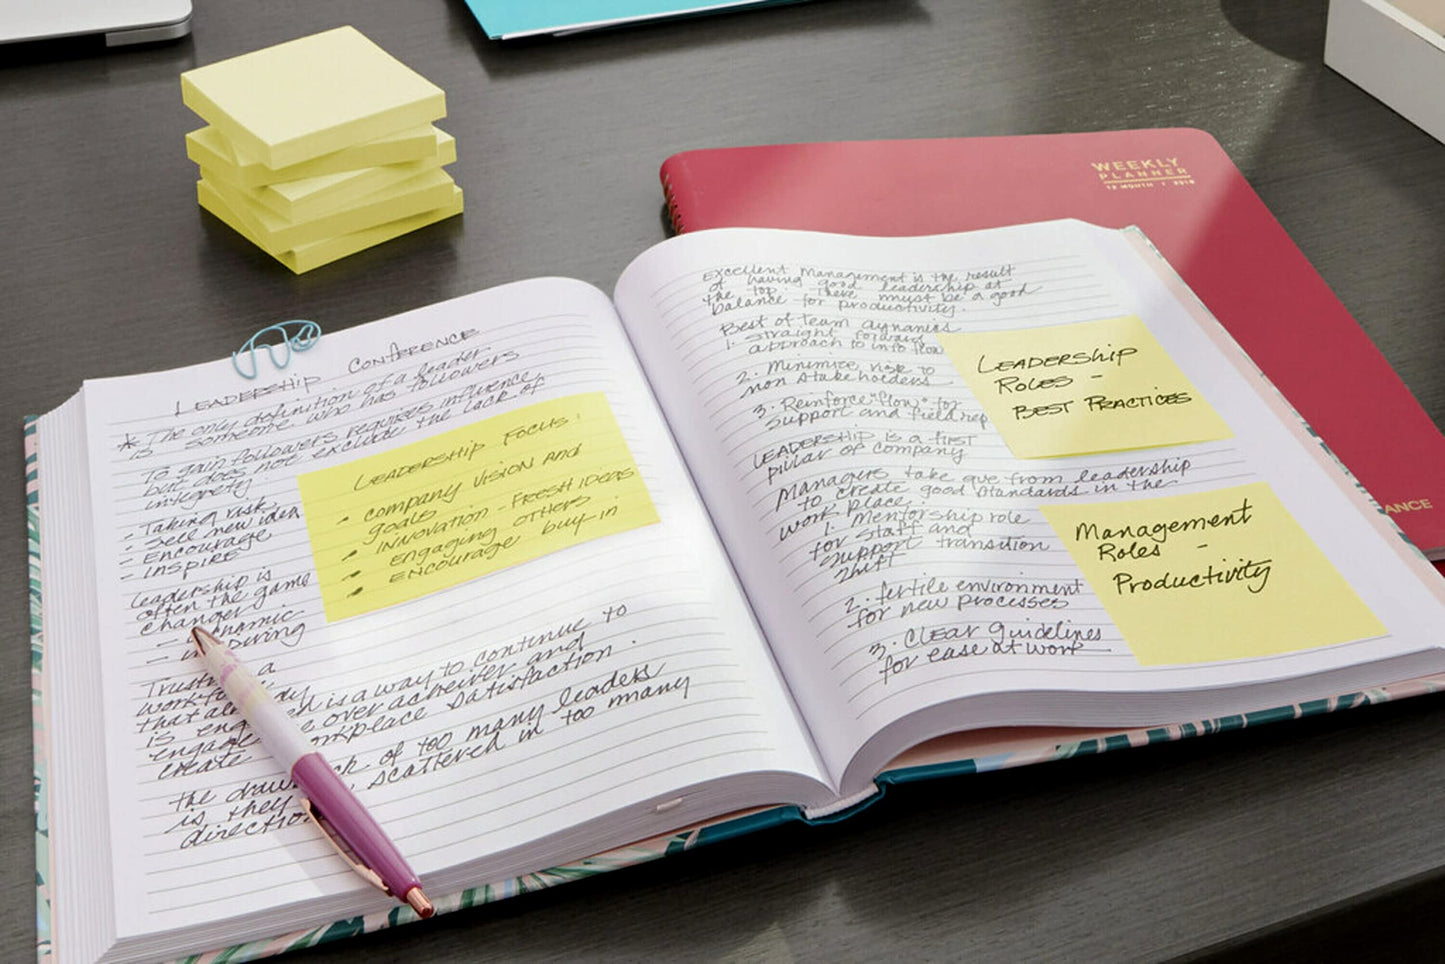 LEADERSHIP CONFERENCE
* The only definition of a leader
is someone who has followers
To gain followers requires influence
but does not exclude the lack of
integrety.
- Taking risk
- Sell new idea
- Encourage
- INSPIRE
Leadership is
often the game
changer
- namic
- ring
Trust a
workfo dy
that al ed is a way to continue to
is eng e over achiever and
engage orkplace satisfaction.
create
the draw ck of too many leaders
is they scattered in too many
directio
LEADERSHIP FOCUS:
• COMPANY VISION AND
GOALS
• INNOVATION - FRESH IDEAS
• ENGAGING OTHERS
• ENCOURAGE buy in
Excellent management is the result
of having good leadership at
the top. There must be a good
balance for productivity.
Best of team dynamics
1. Straight forward
approach to info flow
2. Minimize risk to
non stakeholders
3. Reinforce "flow" for
support and field rep
LEADERSHIP is a first
pillar of company
Managers take que from leadership
to create good standards in the
work place
1. Mentorship role
for staff and
support transition
shift
2. fertile environment
for new processes
3. Clear guidelines
for ease at work
LEADERSHIP
ROLES -
BEST PRACTICES
Management
Roles -
Productivity
WEEKLY
PLANNER
12 MONTH | 2019
ANCE